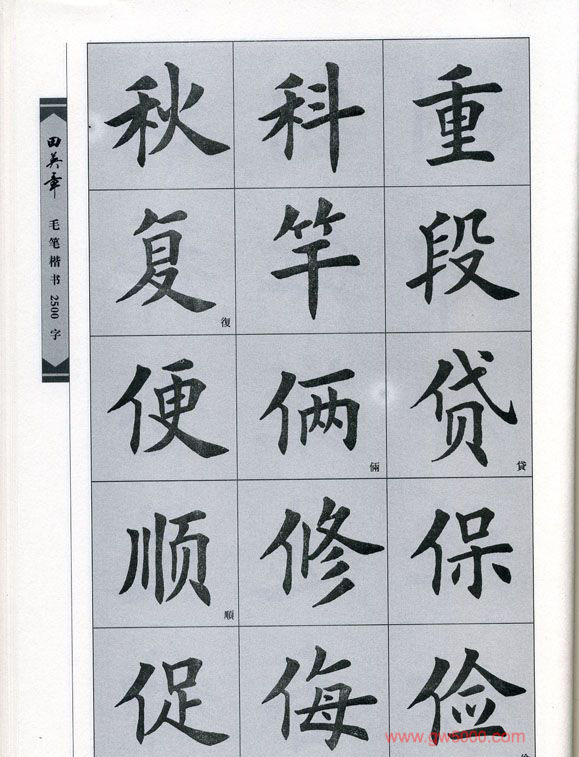 田英章
毛笔楷书2500字
秋 科 重
复 竿 段
復
便 俩 贷
倆 貸
顺 修 保
順
促 侮 俭